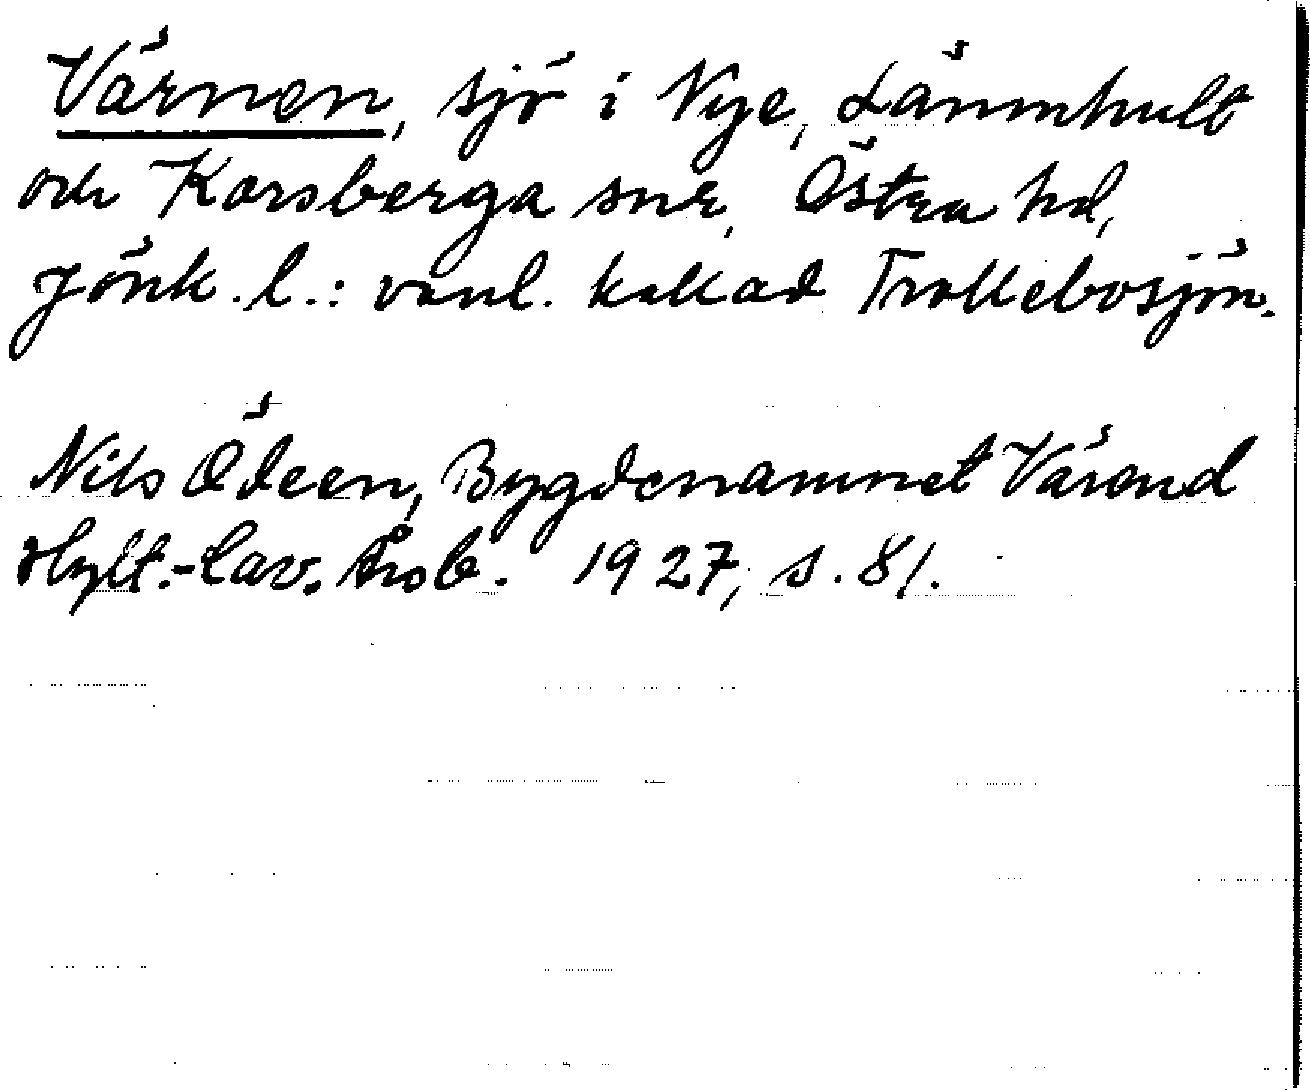 Värnen, sjö i Nye, Lännhult
och Korsberga snr, Östra hd,
Jönk. l.: vanl. kallad Trollebosjön.
Nils Ödeen, Bygdenamnet Värend
Hylt.-Cav. Årsb. 1927, s. 81.